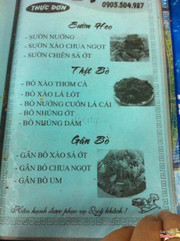 THỰC ĐƠN
0905.504.927
Sườn Heo
- SƯỜN NƯỚNG
- SƯỜN XÀO CHUA NGỌT
- SƯỜN CHIÊN SẢ ỚT
Thịt Bò
- BÒ XÀO THƠM CÀ
- BÒ XÀO LÁ LỐT
- BÒ NƯỚNG CUỐN LÁ CẢI
- BÒ NHÚNG ỚT
- BÒ NHÚNG DẤM
Gân Bò
- GÂN BÒ XÀO SẢ ỚT
- GÂN BÒ CHUA NGỌT
- GÂN BÒ UM
Hân hạnh được phục vụ Quý khách !